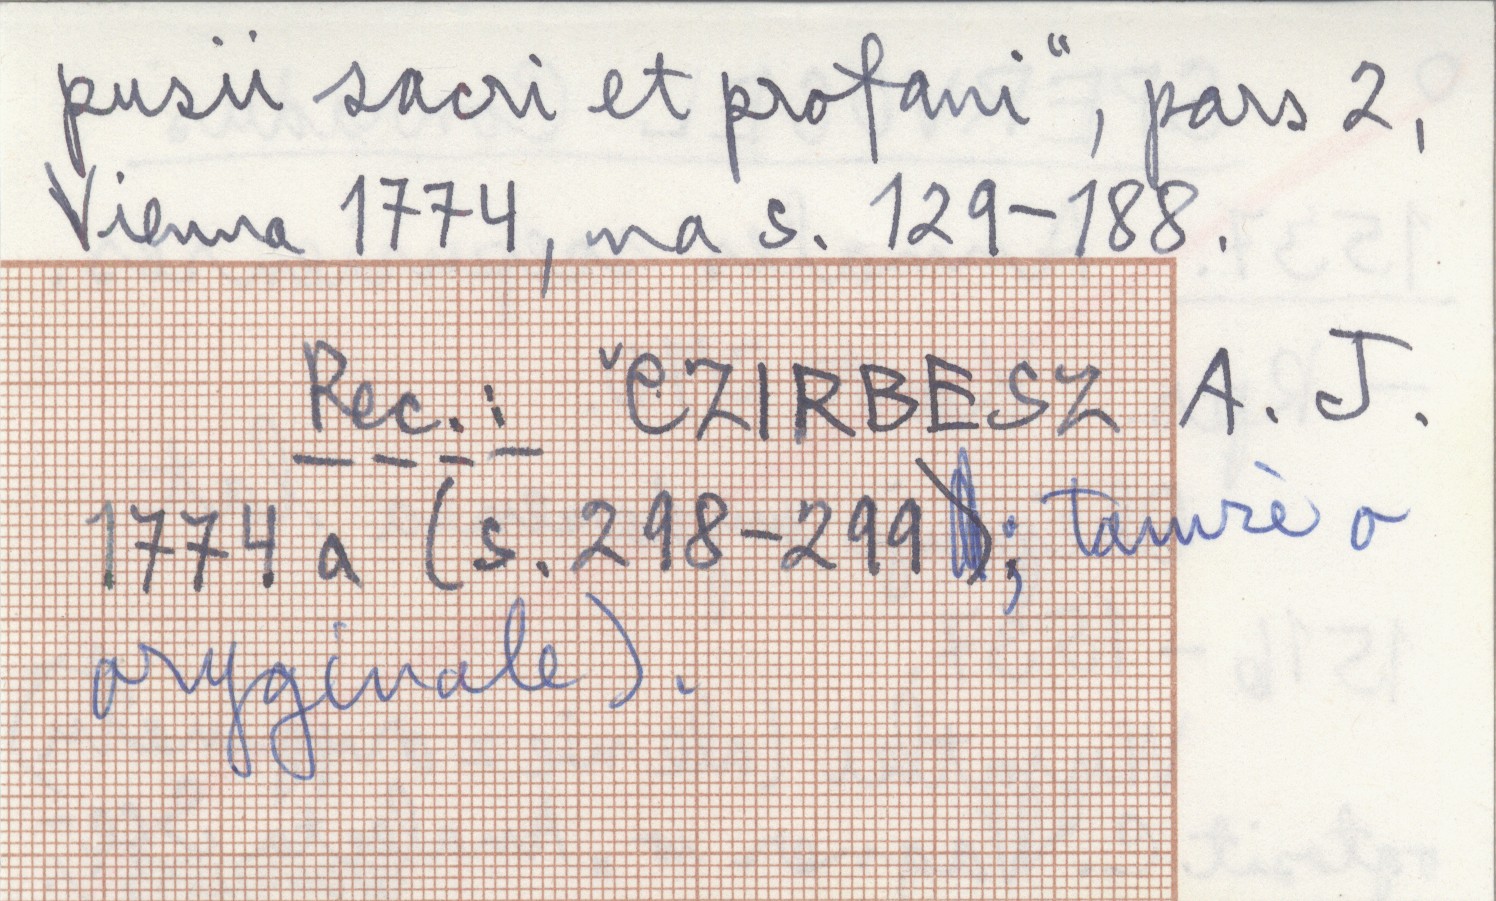 pusii sacri et profani“, pars 2,
Vienna 1774, na s. 129-188.
Rec.: ˇCZIRBESZ A. J.
1774 a (s. 298-299); tamże o
oryginale).